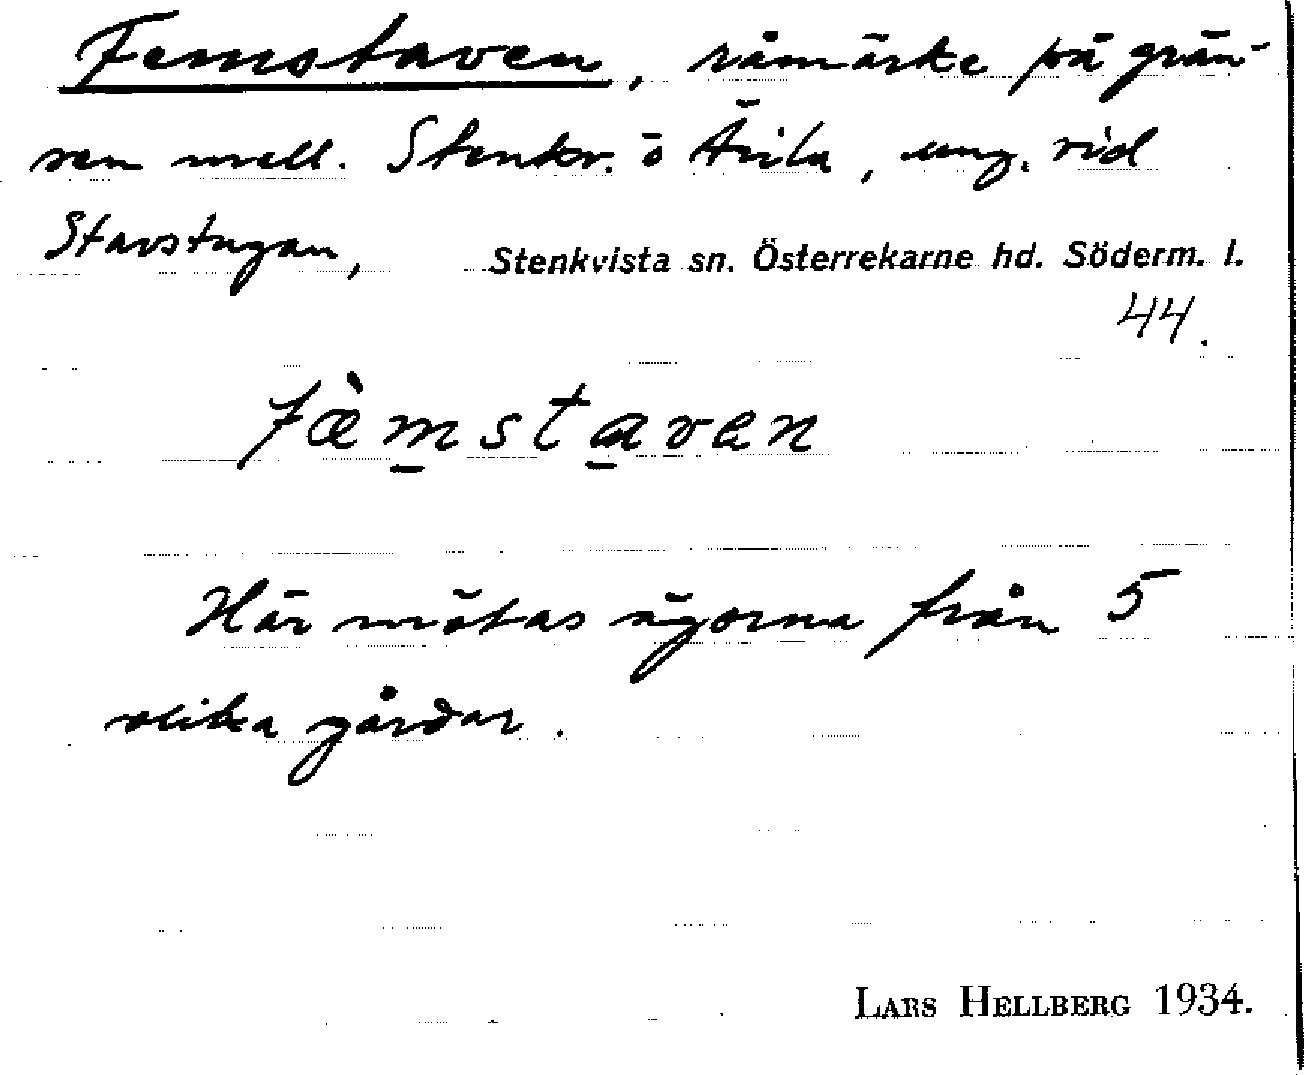 Femstaven, råmärke på grän-
sen mell. Stenkv. o Ärila, ung. vid
Stavstugan, Stenkvista sn. Österrekarne hd. Söderm. l.
44.
fæ̀mstaven
Här mötas ägorna från 5
olika gårdar.
LARS HELLBERG 1934.